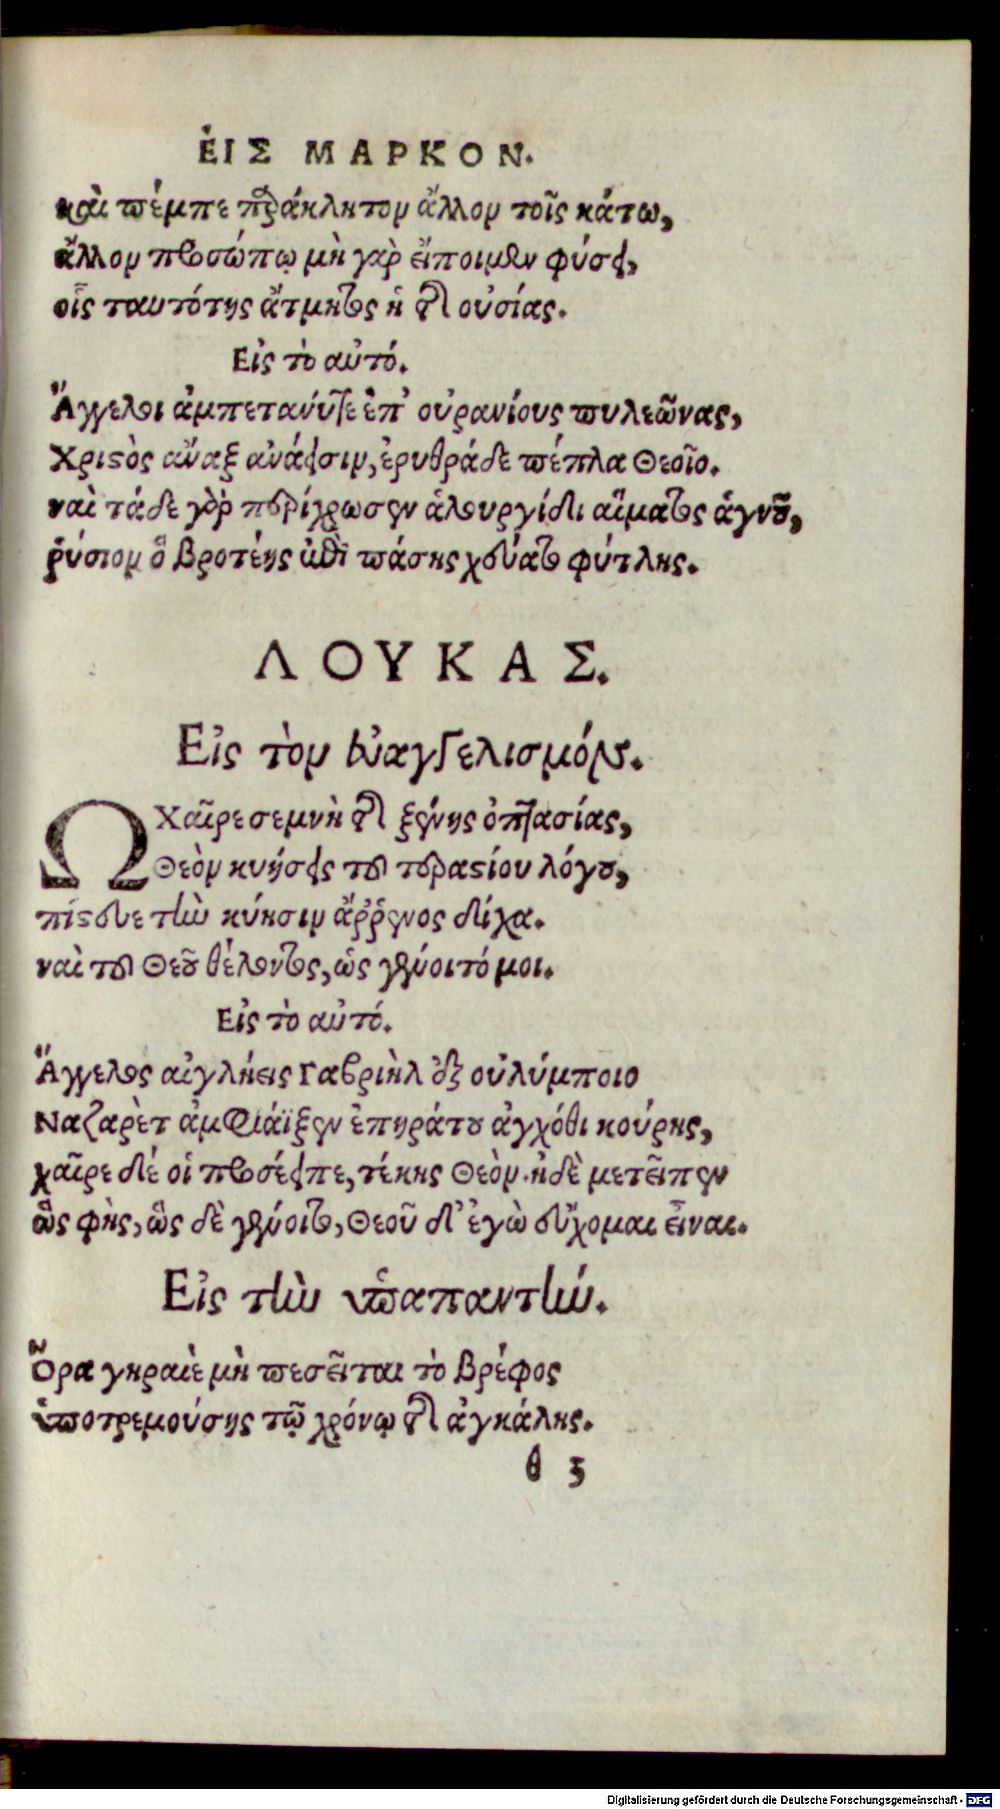 ἘΙΣ ΜΑΡΚΟΝ.
καὶ πέμπε παράκλητον ἄλλον τοῖς κάτω,
ἄλλον προσώπῳ μὴ γὰρ εἴποιμεν φύσει,
οἷς ταυτότης ἄτμητος ἡ τῆς οὐσίας.
Εἰς τὸ αὐτό.
Ἄγγελοι ἀμπετανύτε ἐπ' οὐρανίους πυλεῶνας,
Χριστὸς ἄναξ ἀνάεισιν, ἐρυθρά δε πέπλα Θεοῖο.
ναὶ τά δε γὰρ περίχρωσεν ἁλουργίδι αἵματος ἁγνοῦ,
ῥύσιον ὃ βροτέης ὑπὲρ πάσης χεύατο φύτλης.
ΛΟΥΚΑΣ.
Εἰς τὸν εὐαγγελισμόν.
Ὦ Χαῖρε σεμνὴ τῆς ξένης ὀπτασίας,
Θεὸν κυήσεις τοῦ τεραστίου λόγου,
πίστευε τὴν κύησιν ἄῤῥενος δίχα.
ναὶ τοῦ Θεοῦ θέλοντος, ὡς γένοιτό μοι.
Εἰς τὸ αὐτό.
Ἄγγελος αἰγλήεις Γαβριὴλ ἐξ οὐλύμποιο
Ναζαρὲτ ἀμφιάϊξεν ἐπηράτου ἀγχόθι κούρης,
χαῖρε δέ οἱ προσέειπε, τέκης Θεὸν. ἡ δὲ μετεῖπεν
ὣς φὴς, ὣς δὲ γένοιτο, Θεοῦ δ' ἐγὼ εὔχομαι εἶναι.
Εἰς τὴν ὑπαπαντήν.
Ὅρα γηραιὲ μὴ πεσεῖται τὸ βρέφος
ὑποτρεμούσης τῷ χρόνῳ τῆς ἀγκάλης.
θ 3
Digitalisierung gefördert durch die Deutsche Forschungsgemeinschaft - DFG